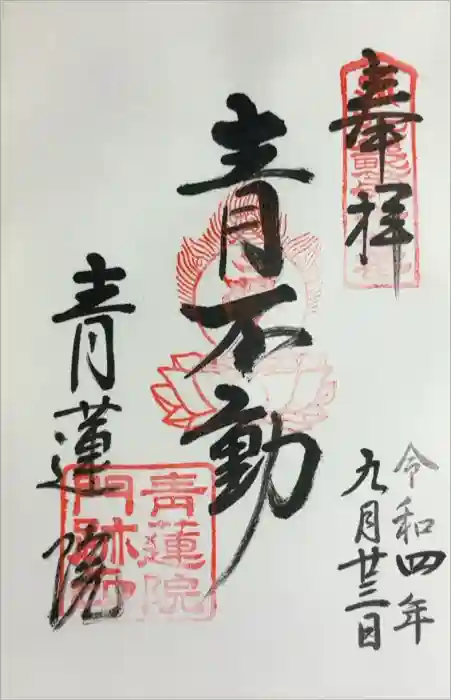 奉拝
令和四年
九月廿三日
青不動
青蓮院
青蓮院
門跡印